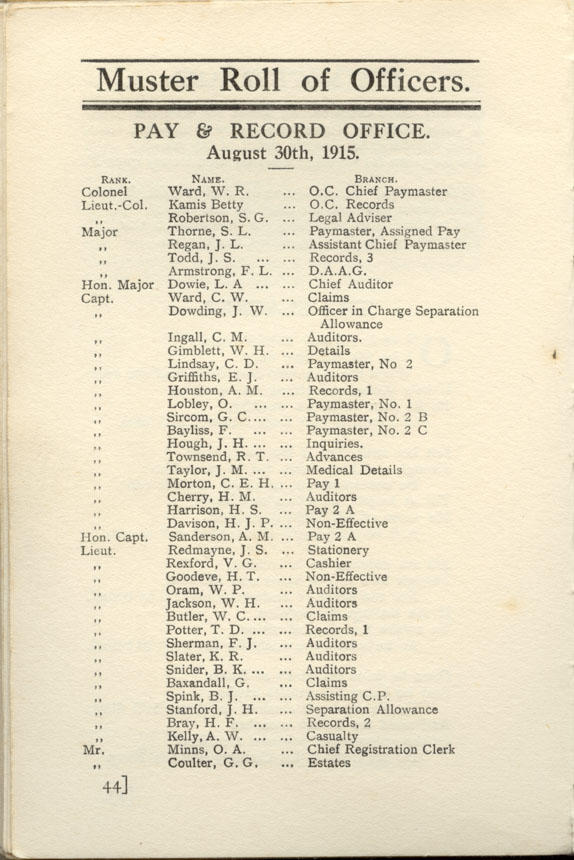 Muster Roll of Officers.
PAY & RECORD OFFICE.
August 30th, 1915.
RANK. NAME. BRANCH.
Colonel Ward, W. R. ... O.C. Chief Paymaster
Lieut.-Col. Kamis Betty ... O.C. Records
,, Robertson, S. G. ... Legal Adviser
Major Thorne, S. L. ... Paymaster, Assigned Pay
,, Regan, J. L. ... Assistant Chief Paymaster
,, Todd, J. S. ... ... Records, 3
,, Armstrong, F. L. ... D.A.A.G.
Hon. Major Dowie, L. A ... ... Chief Auditor
Capt. Ward, C. W. ... Claims
,, Dowding, J. W. ... Officer in Charge Separation
Allowance
,, Ingall, C. M. ... Auditors.
,, Gimblett, W. H. ... Details
,, Lindsay, C. D. ... Paymaster, No 2
,, Griffiths, E. J. ... Auditors
,, Houston, A. M. ... Records, 1
,, Lobley, O. ... ... Paymaster, No. 1
,, Sircom, G. C.... ... Paymaster, No. 2 B
,, Bayliss, F. ... ... Paymaster, No. 2 C
,, Hough, J. H. ... ... Inquiries.
,, Townsend, R. T. ... Advances
,, Taylor, J. M. ... ... Medical Details
,, Morton, C. E. H. ... Pay 1
,, Cherry, H. M. ... Auditors
,, Harrison, H. S. ... Pay 2 A
,, Davison, H. J. P. ... Non-Effective
Hon. Capt. Sanderson, A. M. ... Pay 2 A
Lieut. Redmayne, J. S. ... Stationery
,, Rexford, V. G. ... Cashier
,, Goodeve, H. T. ... Non-Effective
,, Oram, W. P. ... Auditors
,, Jackson, W. H. ... Auditors
,, Butler, W. C.... ... Claims
,, Potter, T. D. ... ... Records, 1
,, Sherman, F. J. ... Auditors
,, Slater, K. R. ... Auditors
,, Snider, B. K. ... ... Auditors
,, Baxandall, G. ... Claims
,, Spink, B. J. ... ... Assisting C.P.
,, Stanford, J. H. ... Separation Allowance
,, Bray, H. F. ... ... Records, 2
,, Kelly, A. W. ... ... Casualty
Mr. Minns, O. A. ... Chief Registration Clerk
,, Coulter, G. G. ... Estates
44]